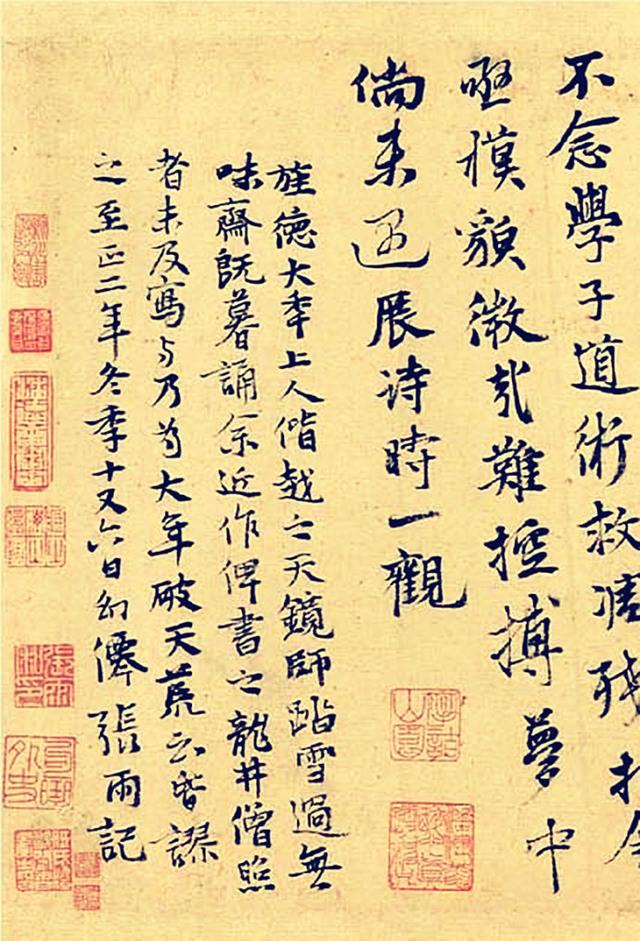 不念學子道術救
亟模貌微哉難控搏夢中
倘未遐展诗時一觀
旌德大秊上人偕越之天鏡師踏雪過無
味齋既暮誦余近作俾書之龍井僧照
者未及寫与乃為大年破天荒云皆謬
之至正二年冬季十又六日幻僊張雨記